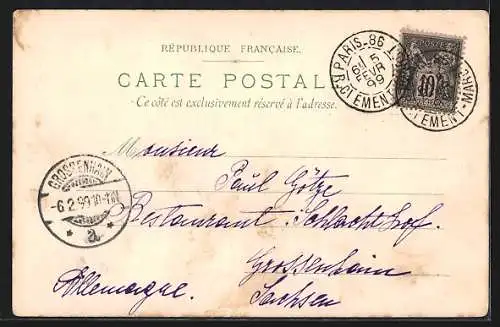 RÉPUBLIQUE FRANÇAISE.
CARTE POSTALE
Ce côté est exclusivement réservé à l'adresse.
PARIS-86
5
FEVR
99
R. CLEMENT-MAROT
POSTES
10
GROSSENHAIN
-6.2.99.10-11V
* a *
Monsieur
Paul Götze
Restaurant Schlachthof.
Grossenhain
Allemagne. Sachsen